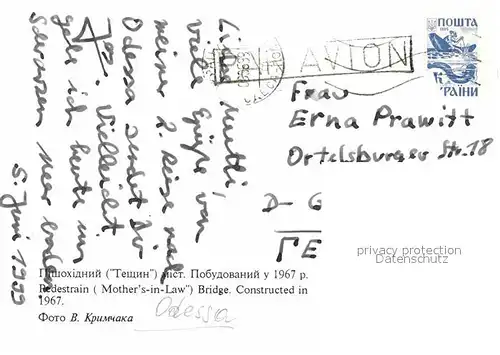 Liebe Mutti,
viele Grüße von
meiner 2. Reise nach
Odessa sendet Dir
Vielleicht
gehe ich heute im
Schwarzen Meer baden.
5. Juni 1999
PAR AVION
ПОШТА
УКРАЇНИ
Frau
Erna Prawitt
Ortelsburger Str. 18
D-G
ГЕ
privacy protection
Datenschutz
Пішохідний ("Тещин") міст. Побудований у 1967 р.
Pedestrain ( Mother's-in-Law") Bridge. Constructed in
1967.
Фото В. Кримчака
Odessa